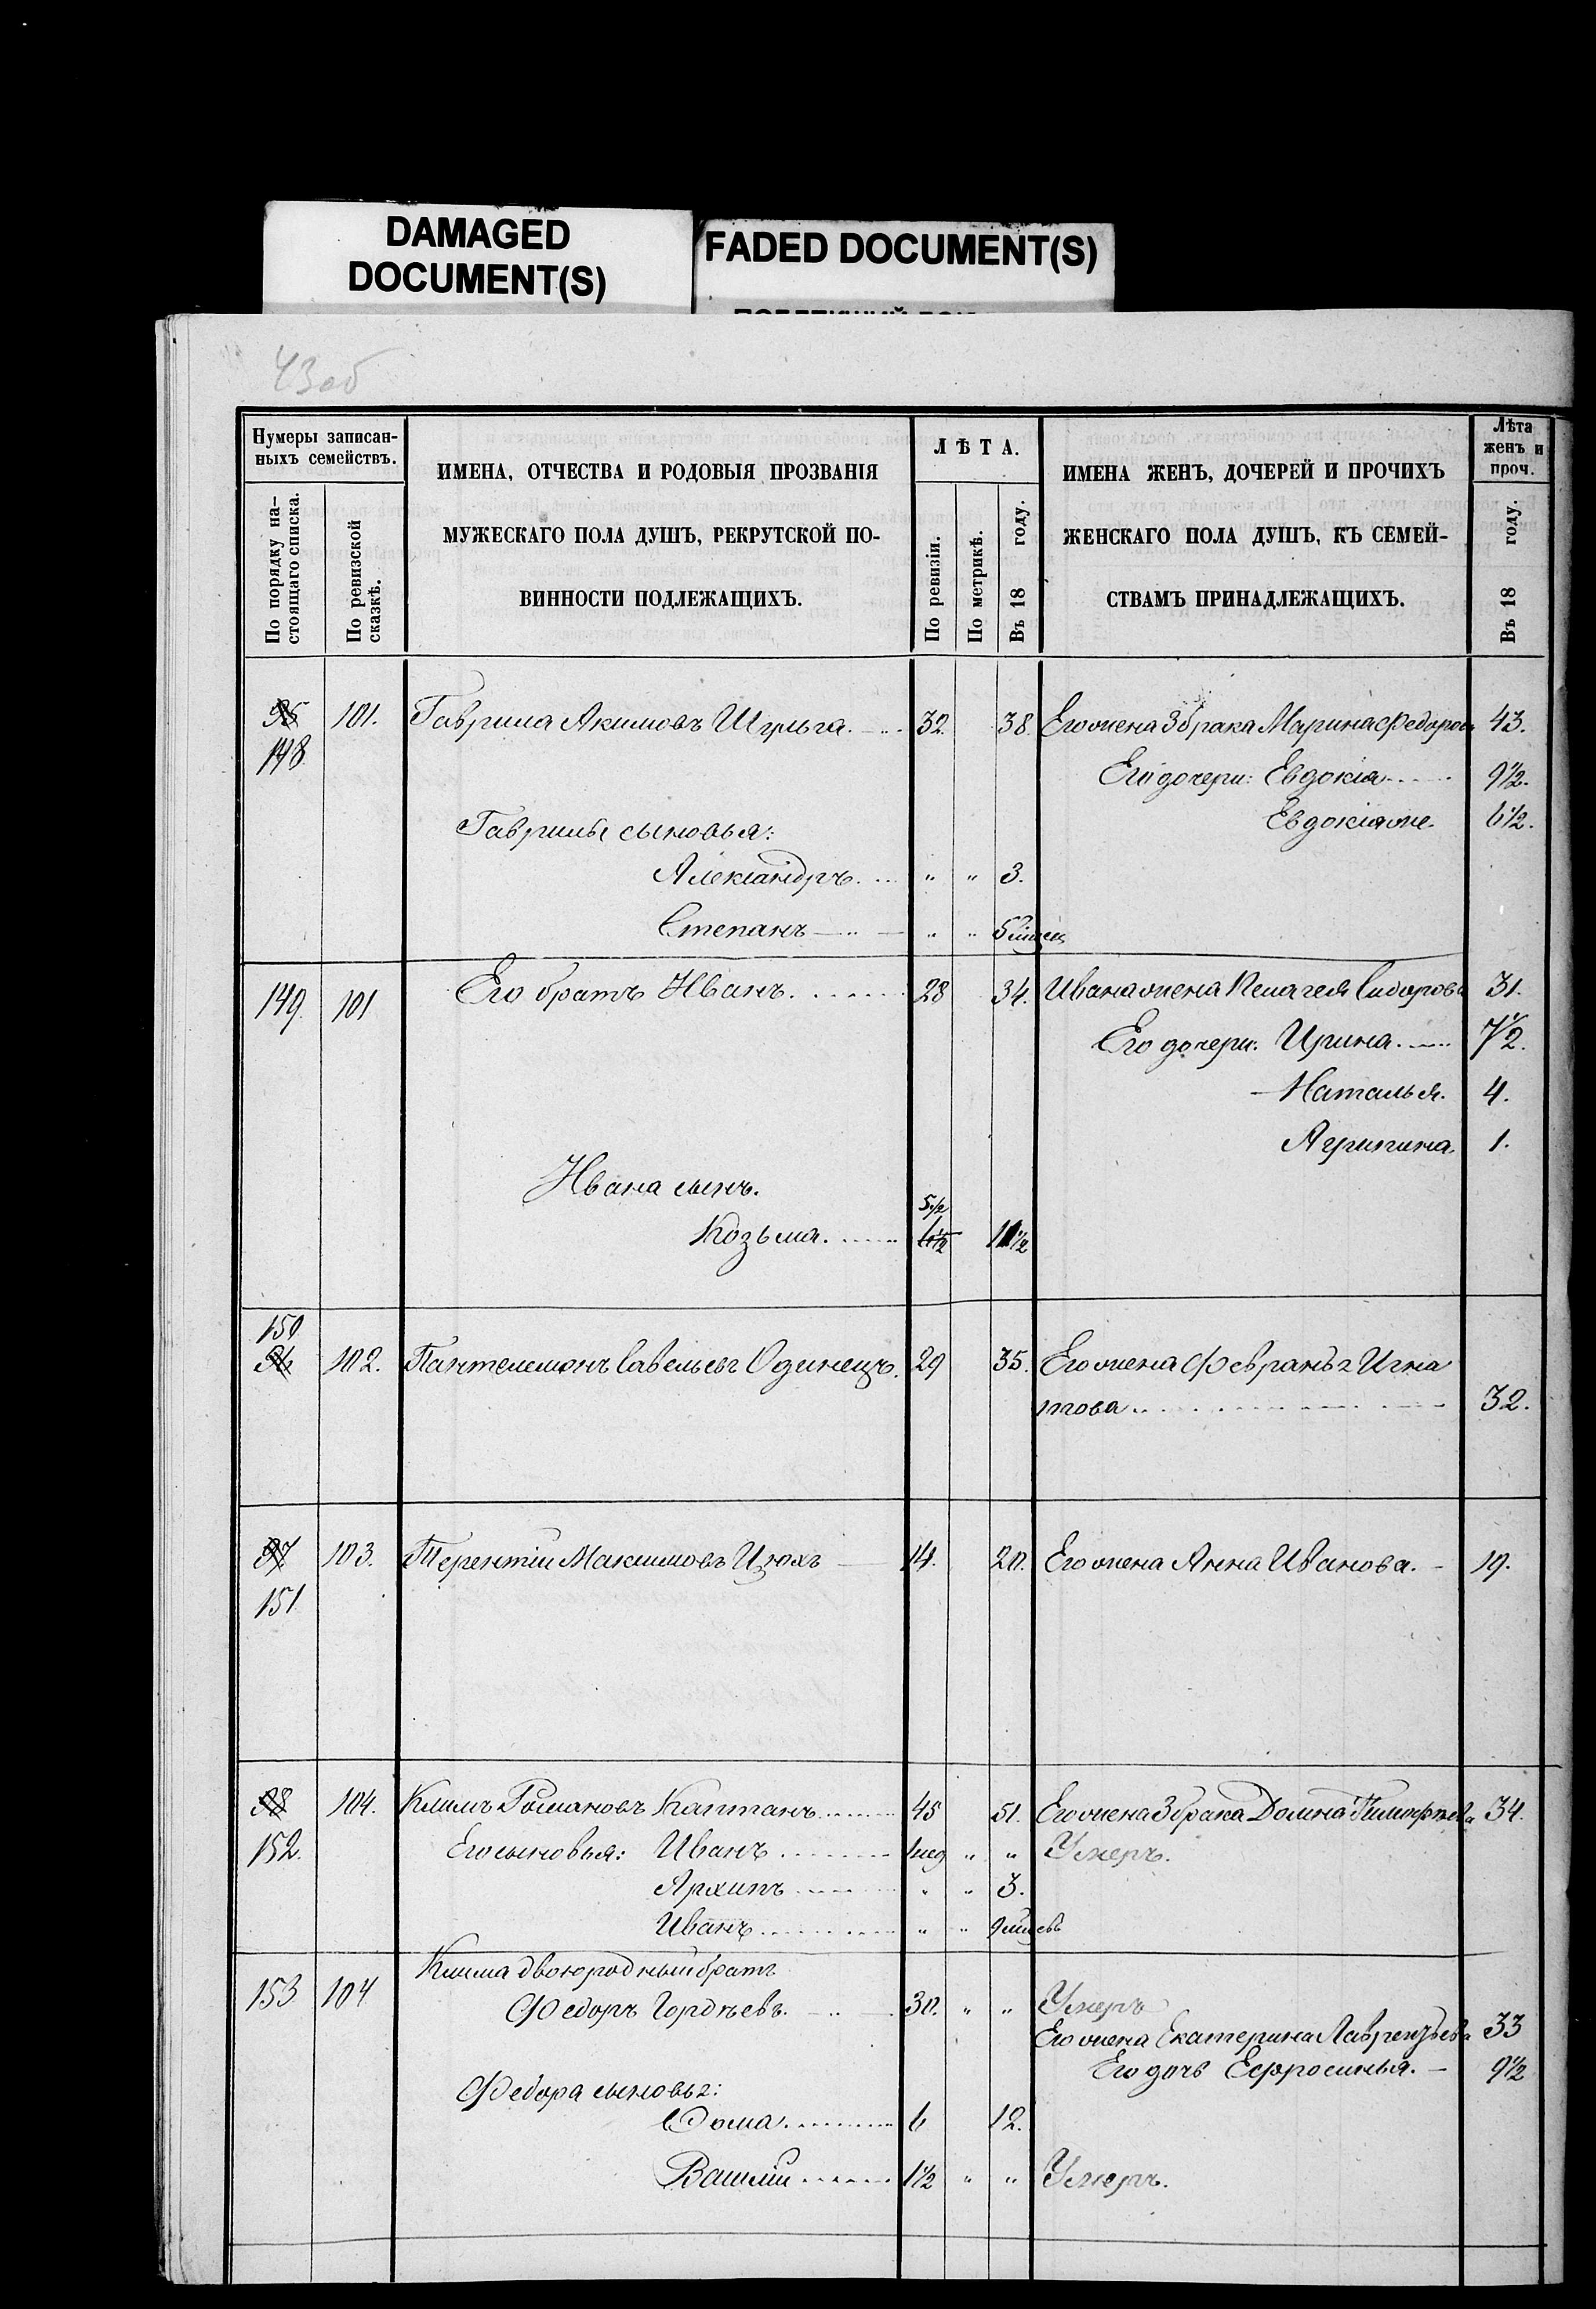 DAMAGED
DOCUMENT(S)
FADED DOCUMENT(S)
43об
Нумеры записан-
ныхъ семействъ.
По порядку на-
стоящаго списка.
По ревизской
сказкѣ.
ИМЕНА, ОТЧЕСТВА И РОДОВЫЯ ПРОЗВАНІЯ
МУЖЕСКАГО ПОЛА ДУШЪ, РЕКРУТСКОЙ ПО-
ВИННОСТИ ПОДЛЕЖАЩИХЪ.
ЛѢТА.
По ревизіи.
По метрикѣ.
Въ 18 году.
ИМЕНА ЖЕНЪ, ДОЧЕРЕЙ И ПРОЧИХЪ
ЖЕНСКАГО ПОЛА ДУШЪ, КЪ СЕМЕЙ-
СТВАМЪ ПРИНАДЛЕЖАЩИХЪ.
Лѣта
женъ и
проч.
Въ 18 году.
95 101. Гаврила Акимовъ 32. 38. Его жена 3 брака Марина Федорова 43.
148 Его дочери: Евдокія 9½.
Гаврилы сыновья: Евдокія же. 6½.
Александръ. " " 3.
Степанъ " " 5 мѣсец
149. 101 Его братъ Иванъ. 28 34. Ивана жена Пелагея Сидорова 31.
Его дочери: Ирина. 7½.
Наталья. 4.
Агрипина. 1.
Ивана сынъ.
5½
Козьма. 6½ 11½
150
96 102. Пантелемонъ Савельевъ Одинецъ. 29 35. Его жена Февраньа Игна
това 32.
97 103. Терентіи Максимовъ Цюхъ 14. 20. Его жена Анна Иванова. 19.
151
98 104. Климъ Романовъ Каптанъ 45 51. Его жена 3 брака Домна Тимофѣева 34.
152. Его сыновья: Иванъ 1 нед " " Умеръ.
Архипъ " " 3.
Иванъ " " 9 мѣсевъ
Клима двоюродный братъ
153 104 Федоръ Гордѣевъ. 30. " " Умеръ
Его жена Екатерина Лаврентьева 33
Его дочь Ефросинья. 9½
Федора сыновья:
Фома 6 12.
Василіи 1½ " " Умеръ.